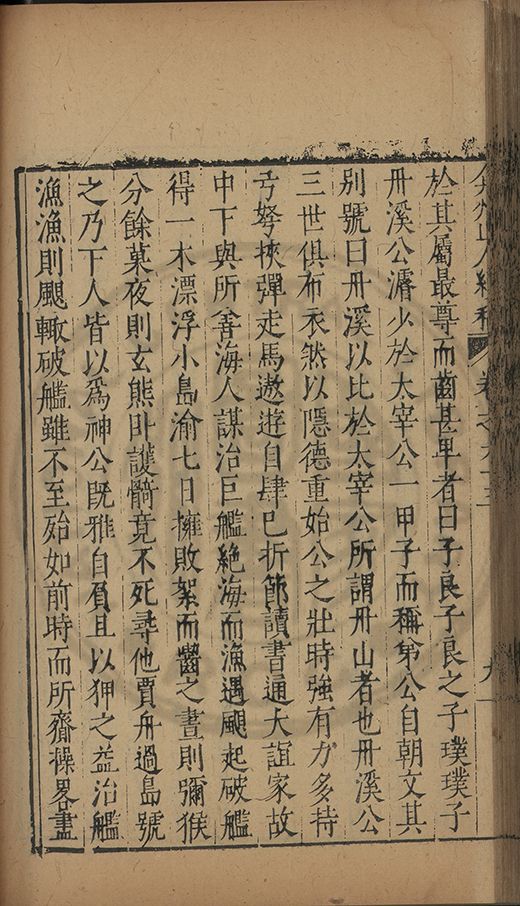 弇州山人續稿 卷之九十三 九
於其屬最尊而齒甚卑者曰子良子良之子璞璞子
丹溪公濬少於太宰公一甲子而稱弟公自朝文其
別號曰丹溪以比於太宰公所謂丹山者也丹溪公
三世俱布衣然以隱德重始公之壯時強有力多持
弓弩挾彈走馬遨遊自肆已折節讀書通大誼家故
中下與所善海人謀治巨艦絕海而漁遇颶起破艦
得一木漂浮小島渝七日擁敗絮而齧之晝則彌猴
分餘菓夜則玄熊卧護觭竟不死尋他賈舟過島號
之乃下人皆以爲神公既雅自負且以狎之益治艦
漁漁則颶輙破艦雖不至殆如前時而所齎操畧盡